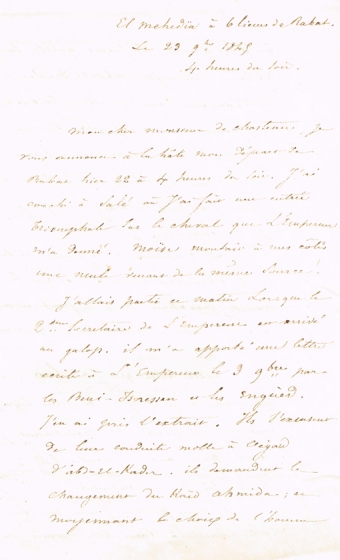 El mehedia à 6 lieues de Rabat.
Le 23 9bre 1845
4 heures du soir.
mon cher monsieur de chasteau, Je
vous annonce à la hâte mon départ de
Rabat hier 22 à 4 heures du soir. J'ai
couché à Salé où J'ai fait une entrée
triomphale sur le cheval que L'Empereur
m'a donné. Moïse montait à mes côtés
une mule venant de la même source.
J'allais partir ce matin Lorsque le
2eme Secrétaire de L'Empereur est arrivé
au galop. il m'a apporté une lettre
écrite à L'Empereur le 3 9bre par
les Beni-Snassen et les Engued.
J'en ai pris l'extrait. Ils s'excusent
de leur conduite molle à l'égard
d'abd-el-Kader. ils demandent le
changement du Kaïd ahmida; et
moyennant le choix de l'homme